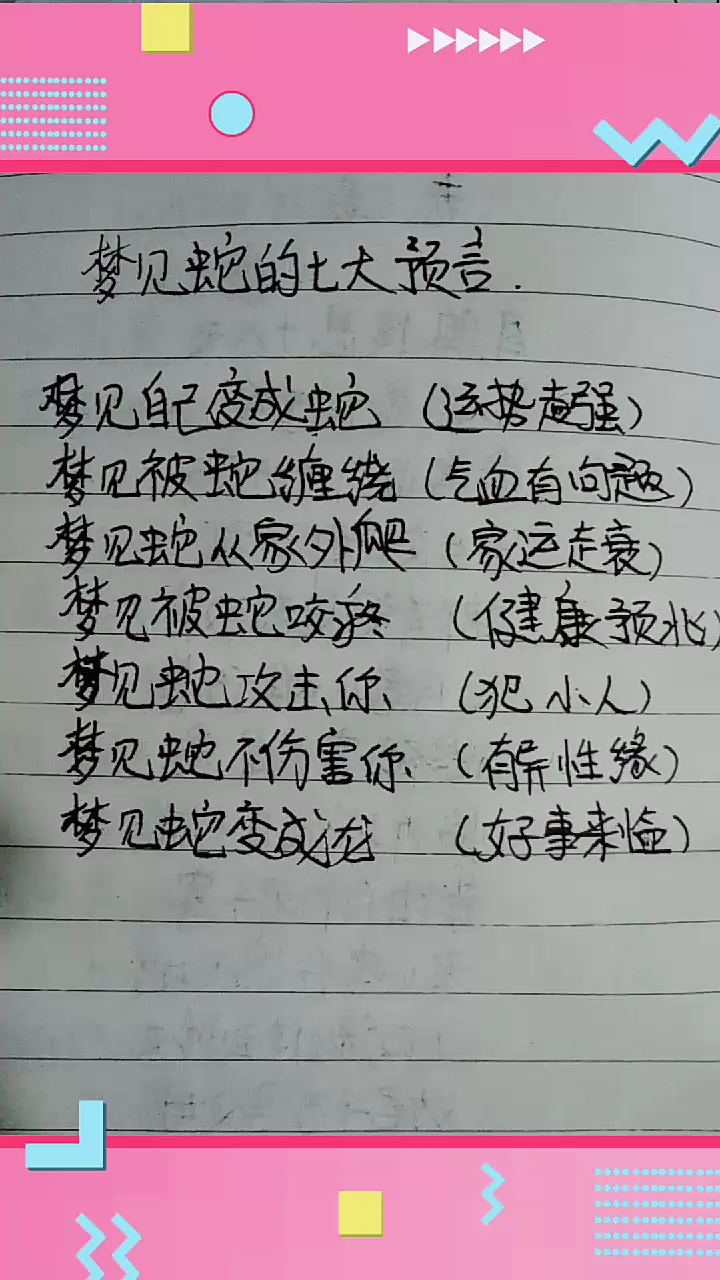 梦见蛇的七大预言.
梦见自己变成蛇（运势走强）
梦见被蛇缠绕（气血有问题）
梦见蛇从家外爬（家运走衰）
梦见被蛇咬疼（健康预兆）
梦见蛇攻击你（犯小人）
梦见蛇不伤害你（有异性缘）
梦见蛇变成龙（好事来临）